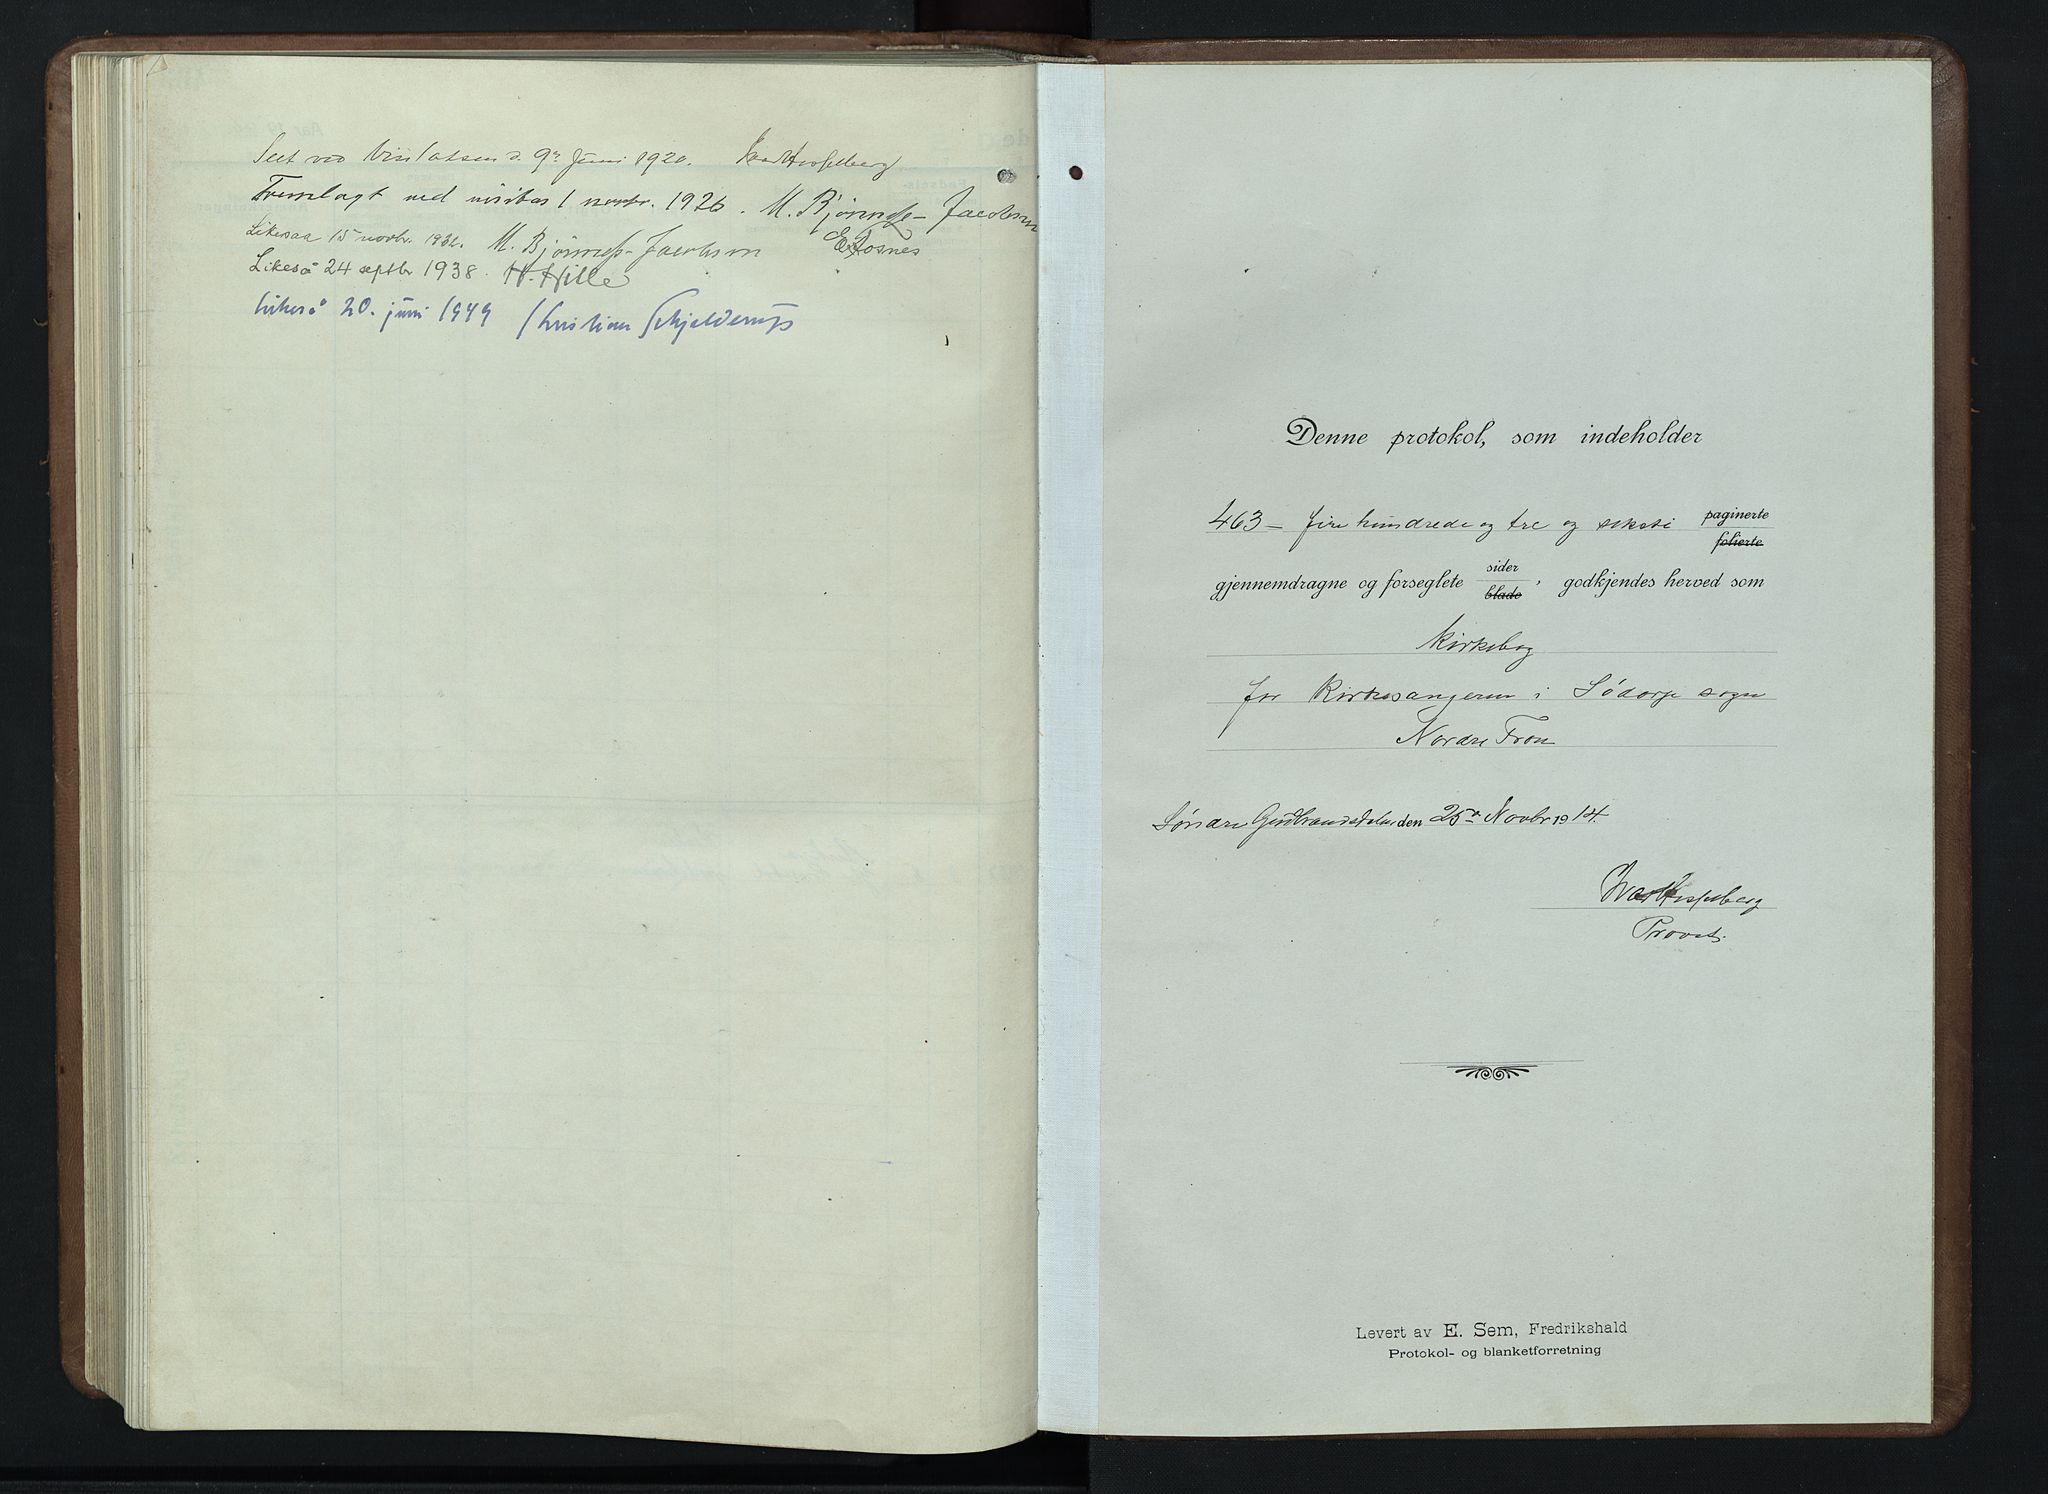 Seet ved Visitatsen d. 9de Juni 1920. Ivar Hesselberg
Fremlagt ved visitas 1 novbr. 1926. M. Bjönness-Jacobsen
Likesaa 15 novbr. 1932. M. Bjönness-Jacobsen E. Fosnes
Likeså 24 septbr 1938. H. Hille
Likeså 20. juni 1949 Kristian Schjelderup
Denne protokol, som indeholder
463 - fire hundrede og tre og seksti paginerte
folierte
gjennemdragne og forseglete sider, godkjendes herved som
blade
Kirkebog
for Kirkesangeren i Södorp sogn
Nordre Fron
Søndre Gudbrandsdalen den 25de Novbr 1914.
Ivar Hesselberg
Provst.
Levert av E. Sem, Fredrikshald
Protokol- og blanketforretning